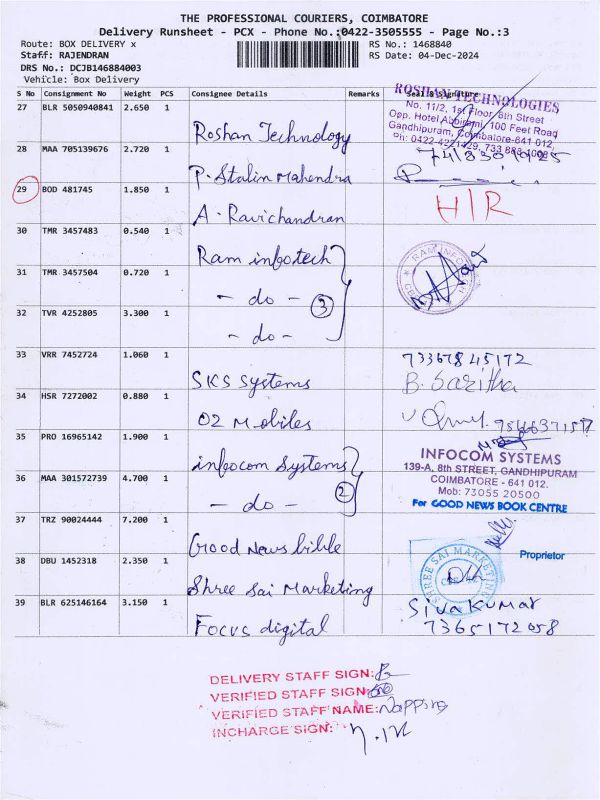 THE PROFESSIONAL COURIERS, COIMBATORE
Delivery Runsheet - PCX - Phone No.:0422-3505555 - Page No.:3
Route: BOX DELIVERY x
RS No.: 1468840
Staff: RAJENDRAN
RS Date: 04-Dec-2024
DRS No.: DCJB146884003
Vehicle: Box Delivery
S No Consignment No Weight PCS Consignee Details Remarks Seal & Signature
27 BLR 5050940841 2.650 1 Roshan Technology
ROSHAN TECHNOLOGIES
No. 11/2, 1st Floor, 8th Street
Opp. Hotel Abbirami, 100 Feet Road
Gandhipuram, Coimbatore-641 012,
28 MAA 705139676 2.720 1 P. Stalin Mahendra
29 BOD 481745 1.850 1 A. Ravichandran H/R
30 TMR 3457483 0.540 1 Ram infotech
RAM INFO
31 TMR 3457504 0.720 1 - do - 3
32 TVR 4252805 3.300 1 - do -
33 VRR 7452724 1.060 1 SKS Systems
73367845172
B. Saritha
34 HSR 7272002 0.880 1 O2 Mobiles
35 PRO 16965142 1.900 1 infocom Systems
INFOCOM SYSTEMS
139-A, 8th STREET, GANDHIPURAM
COIMBATORE - 641 012.
Mob: 73055 20500
36 MAA 301572739 4.700 1 - do - 2
For GOOD NEWS BOOK CENTRE
Proprietor
37 TRZ 90024444 7.200 1 Good News bible
38 DBU 1452318 2.350 1 Shree Sai Marketing
SHREE SAI MARKETING
39 BLR 625146164 3.150 1 Focus digital
SivaKumar
7365172058
DELIVERY STAFF SIGN:
VERIFIED STAFF SIGN:
VERIFIED STAFF NAME:
INCHARGE SIGN: